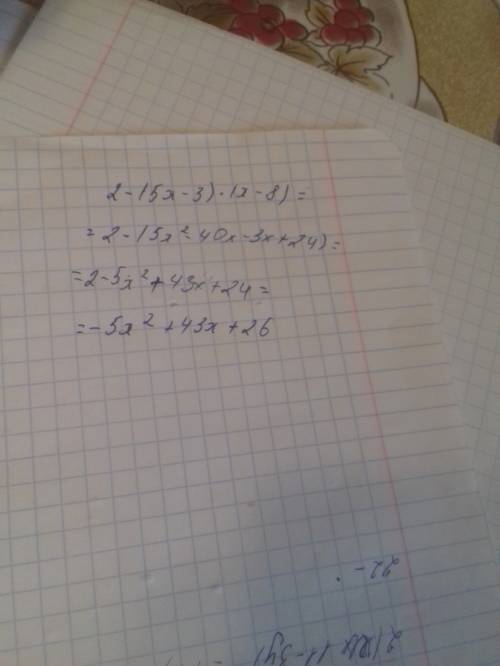 2-(5x-3)·(x-8)=
=2-(5x²-40x-3x+24)=
=2-5x²+43x+24=
=-5x²+43x+26
22-